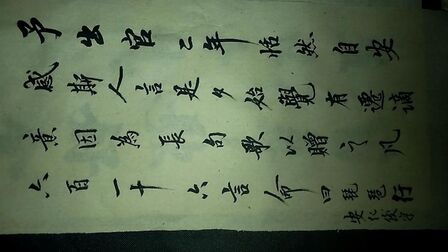 予出官二年恬然自安
感斯人言是夕始覺有遷謫
意因為長句歌以贈之凡
六百一十六言命曰琵琶行